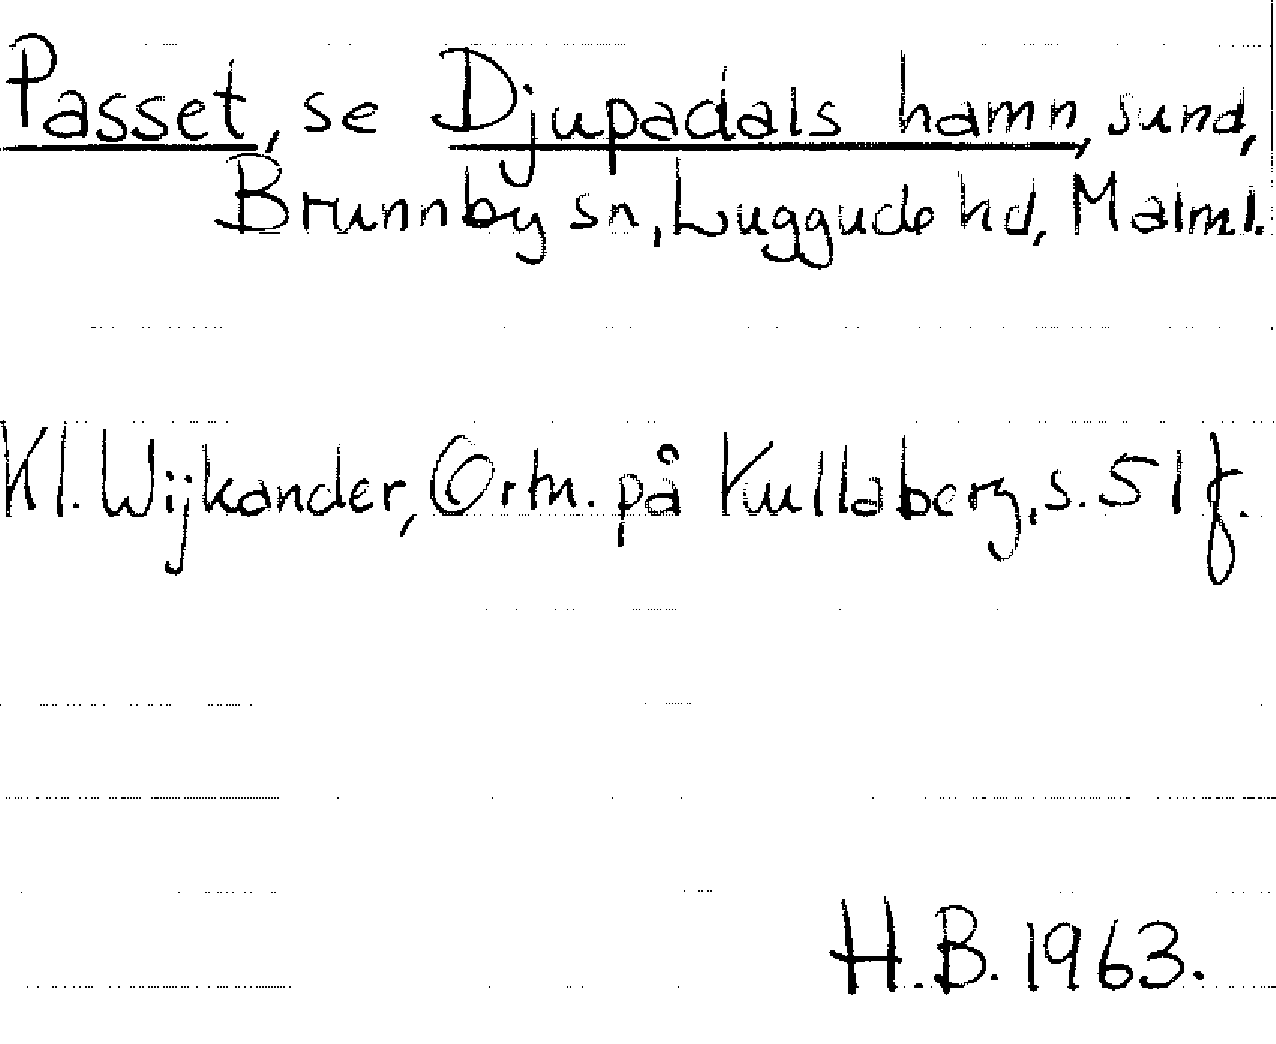 Passet, se Djupadals hamn, sund,
Brunnby sn, Luggude hd, Malml.
Kl. Wijkander, Ortn. på Kullaberg, s. 51 f.
H.B. 1963.